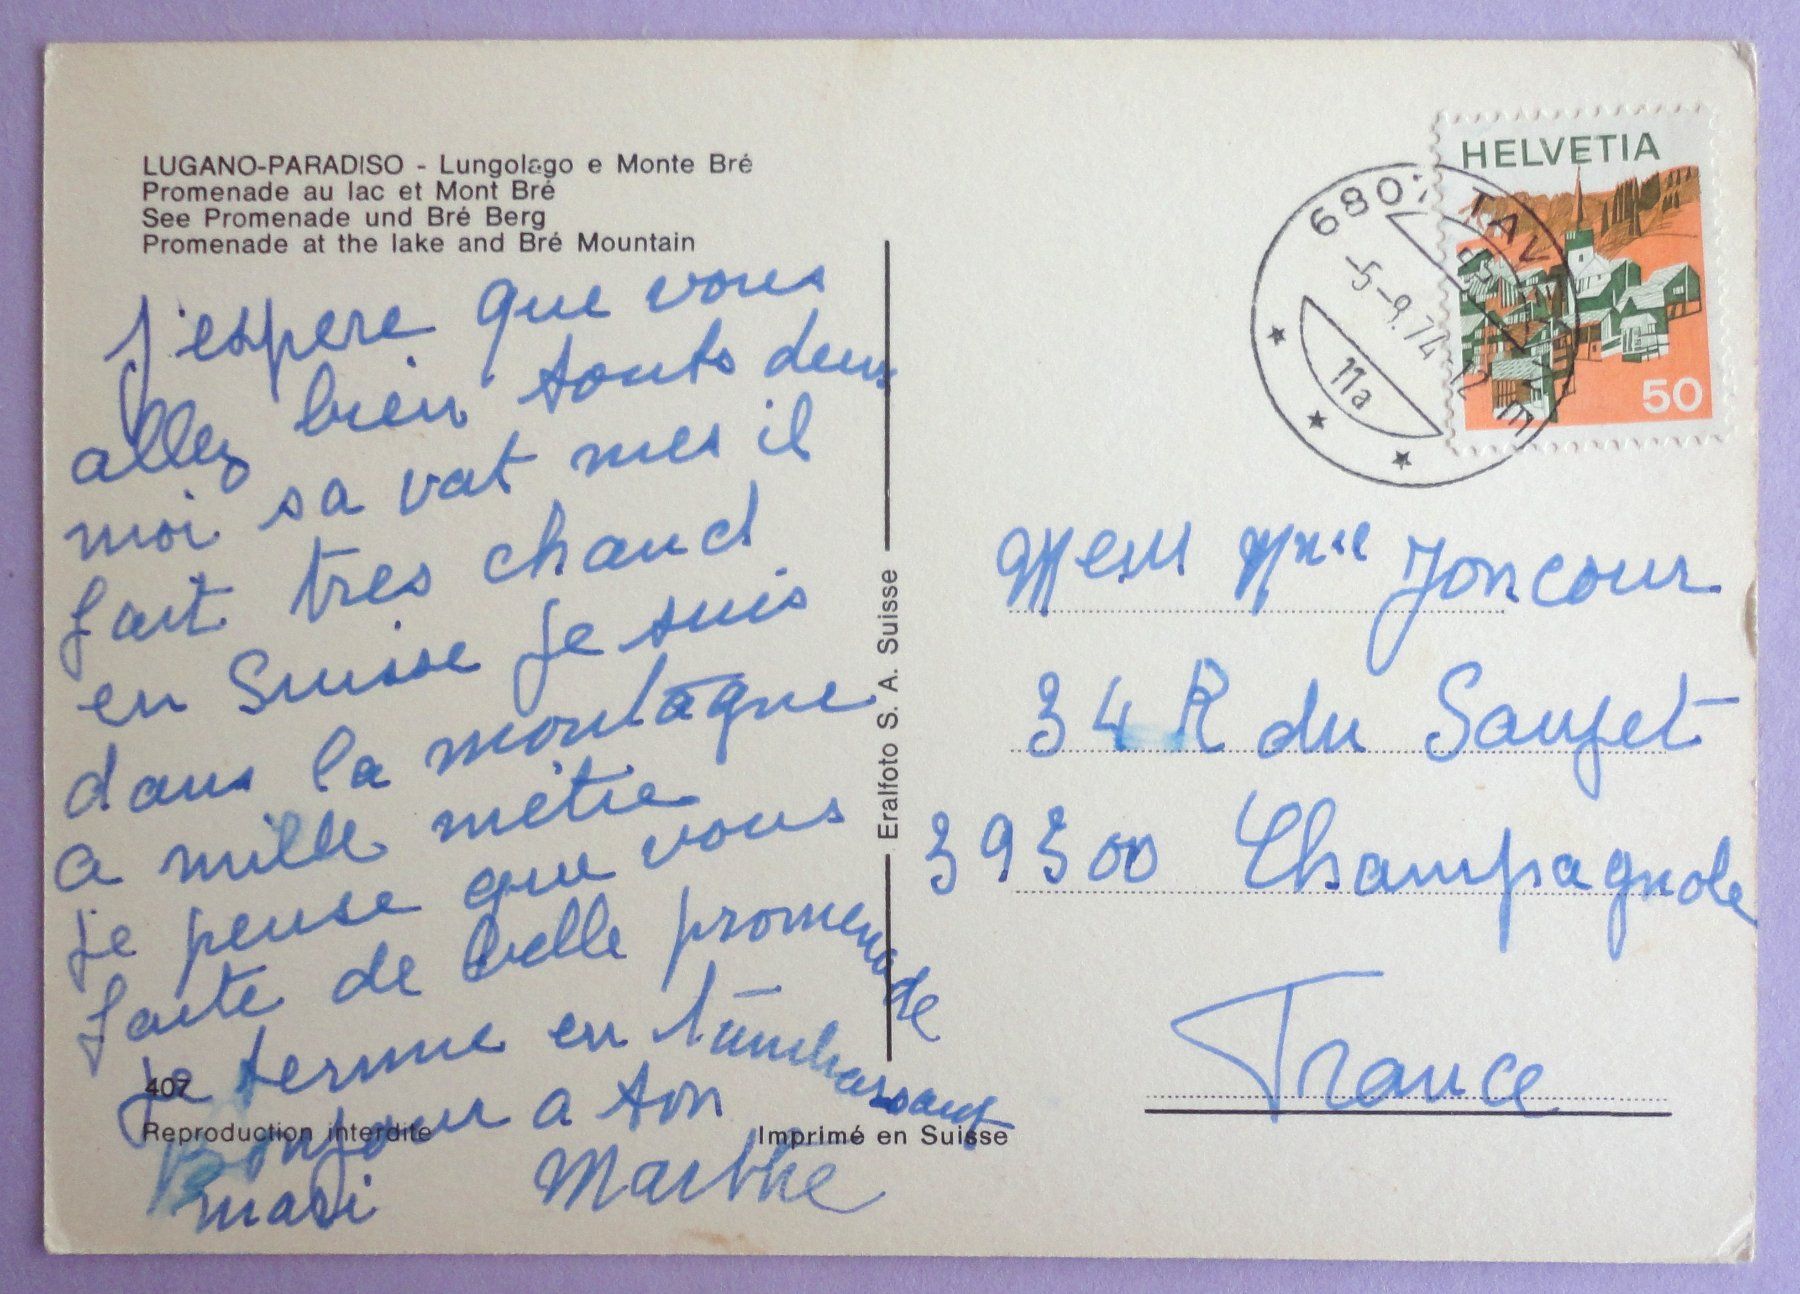 LUGANO-PARADISO - Lungolago e Monte Bré
Promenade au lac et Mont Bré
See Promenade und Bré Berg
Promenade at the lake and Bré Mountain
j'espere que vous
allez bien touts deux
moi sa vat mes il
fait tres chaud
en Suisse je suis
dans la montagne
a mille mètre
je pense que vous
faite de belle promenade
je terme en t'embrassant
Bonjour a ton
mari Marthe
407
Reproduction interdite
Imprimé en Suisse
Eralfoto S. A. Suisse
HELVETIA
50
6807 TAV
-5-9.74 12
11a
Mme Joncour
34 R du Saufet
39300 Champagnole
France